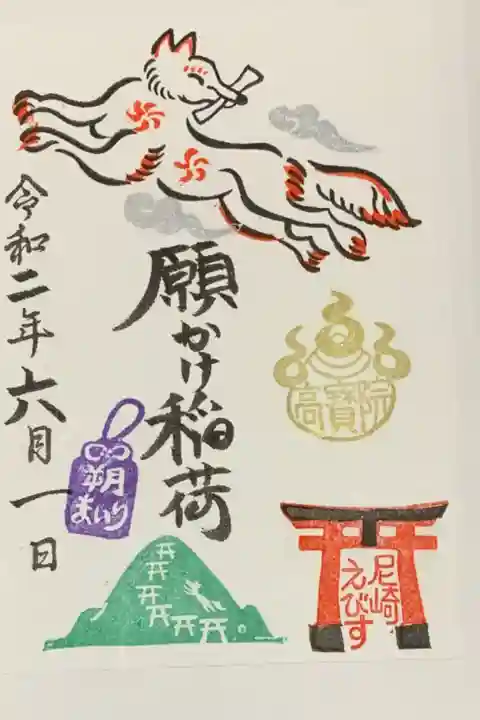 願かけ稲荷
令和二年六月一日
朔月
まいり
高寳院
尼崎
えびす